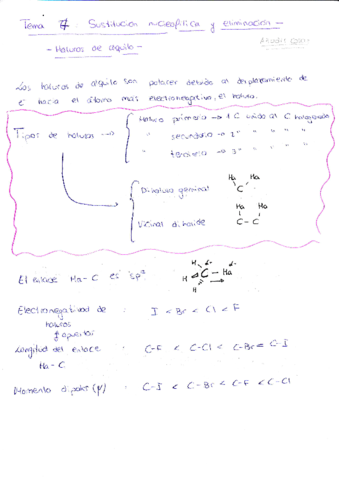 Tema 7. Sustitución nucleofílica y eliminación -
- Haluros de alquilo -
Los haluros de alquilo son polares debido al desplazamiento de
e⁻ hacia el átomo más electronegativo, el haluro.
Haluro primario → 1 C unido al C halogenado
Tipos de haluros → " secundario → 2 " " " "
" terciario → 3 " " " "
Dihaluro geminal
Ha Ha
C
Vicinal dihaluro
Ha Ha
C - C
El enlace Ha - C es sp³
H δ+ δ-
H C - Ha
H
Electronegatividad de : I < Br < Cl < F
haluros
opuestas
Longitud del enlace : C-F < C-Cl < C-Br < C-I
Ha - C
Momento dipolar (μ) : C-I < C-Br < C-F < C-Cl